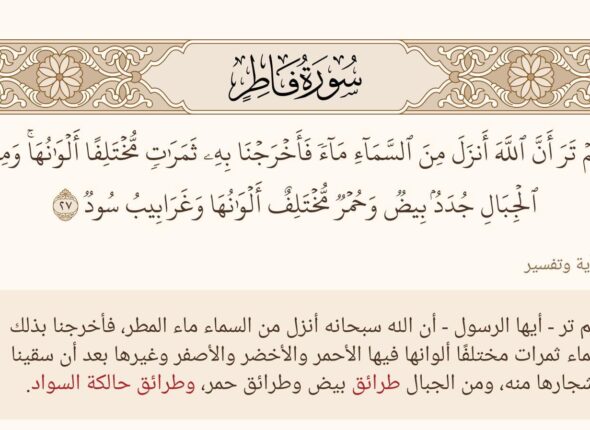 سُورَةُ فَاطِرٍ
مۡ تَرَ أَنَّ ٱللَّهَ أَنزَلَ مِنَ ٱلسَّمَآءِ مَآءٗ فَأَخۡرَجۡنَا بِهِۦ ثَمَرَٰتٖ مُّخۡتَلِفًا أَلۡوَٰنُهَاۚ وَمِ
ٱلۡجِبَالِ جُدَدُۢ بِيضٞ وَحُمۡرٞ مُّخۡتَلِفٌ أَلۡوَٰنُهَا وَغَرَابِيبُ سُودٞ ٢٧
ية وتفسير
م تر - أيها الرسول - أن الله سبحانه أنزل من السماء ماء المطر، فأخرجنا بذلك
ماء ثمرات مختلفًا ألوانها فيها الأحمر والأخضر والأصفر وغيرها بعد أن سقينا
شجارها منه، ومن الجبال طرائق بيض وطرائق حمر، وطرائق حالكة السواد.